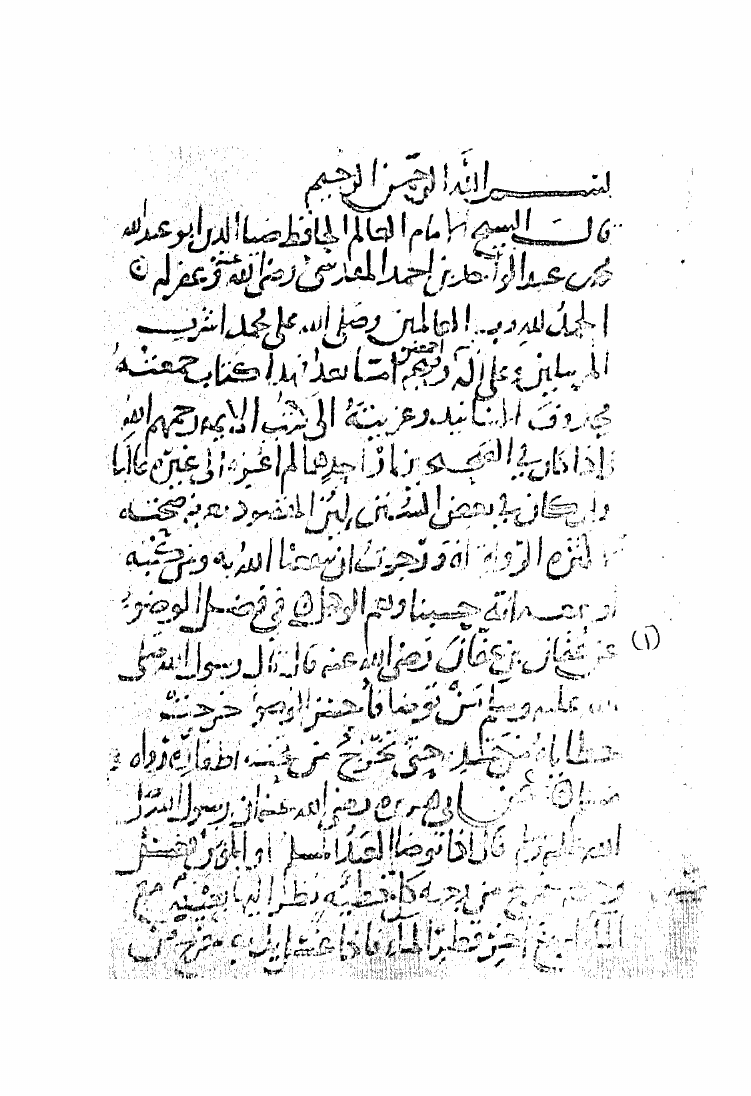 بسم الله الرحمن الرحيم
قال الشيخ الامام العالم الحافظ ضيا الدين ابو عبد الله
محمد بن عبد الواحد بن احمد المقدسي رضي الله عنه وغفر له
الحمد لله رب العالمين وصلى الله على محمد اشرف
المرسلين وعلى آله وصحبهم اجمعين امّا بعد فهذا كتاب جمعته
محذوف الاسانيد وعزيته الى كتب الايمة رحمهم الله
فاذا كان في الصحيحين او احدهما لم اعزه الى غيره غالبا
وان كان في بعض السنن لان المقصود معرفة صحته
لا كثرة الرواة وقد رجوت ان ينفعنا الله به ومن كتبه
او سمعه انه حسبنا ونعم الوكيل في فضل الوضوء
(١) عن عثمان بن عفان رضي الله عنه قال قال رسول الله صلى
الله عليه وسلم من توضا فأحسن الوضوء خرجت
خطاياه من جسده حتى تخرج من تحت اظفاره رواه
مسلم عن ابي هريرة رضي الله عنه ان رسول الله صلى
الله عليه وسلم قال اذا توضا العبد المسلم او المؤمن فغسل
وجهه خرج من وجهه كل خطيئة نظر اليها بعينيه مع
الماء او مع آخر قطر الماء فاذا غسل يديه خرج من